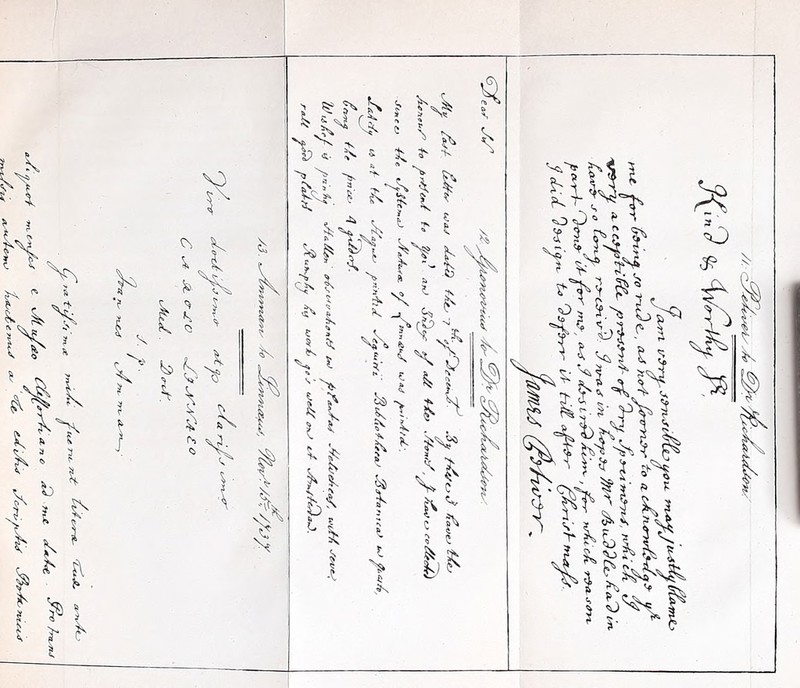 11. Petiver to Dr Richardson.
Kind & Worthy Sr.
I am very sensible you may justly blame
me for being so rude, as not sooner to acknowledge yr
very acceptible present of dry Specimens, which I
have so long receivd. I was in hopes Mr Buddle had in
part done it for me, as I desired him, for which reason
I did design to deferr it till after Christmass.
James Petiver.
12. Gronovius to Dr Richardson.
Dear Sir
My last letter was dated the 7th of Decemb. By these I have the
honour to present to you an Index of all the Stones, I have collected
since the Systema Naturæ of Linnæus was printed.
Lately is at the Hague printed Seguirii Bibliotheca Botanica in quarto,
being the price 4 guldens.
Wishof is printing Halleri observationes in plantas Helveticas, with seve-
rall good plates. Rumphy his work go's well on at Amsterdam.
13. Amman to Linnæus, Novr. 15th 1737.
Viro doctissimo atqe clarissimo
CAROLO LINNÆO
Med. Doct.
S. P.
Joannes Amman.
Gratissimæ mihi fuerunt literæ Tuæ ante
aliquot menses e Musæo Cliffortiano ad me datæ. Pro trans
missis autem hactenus a Te editis Scriptis Botanicis